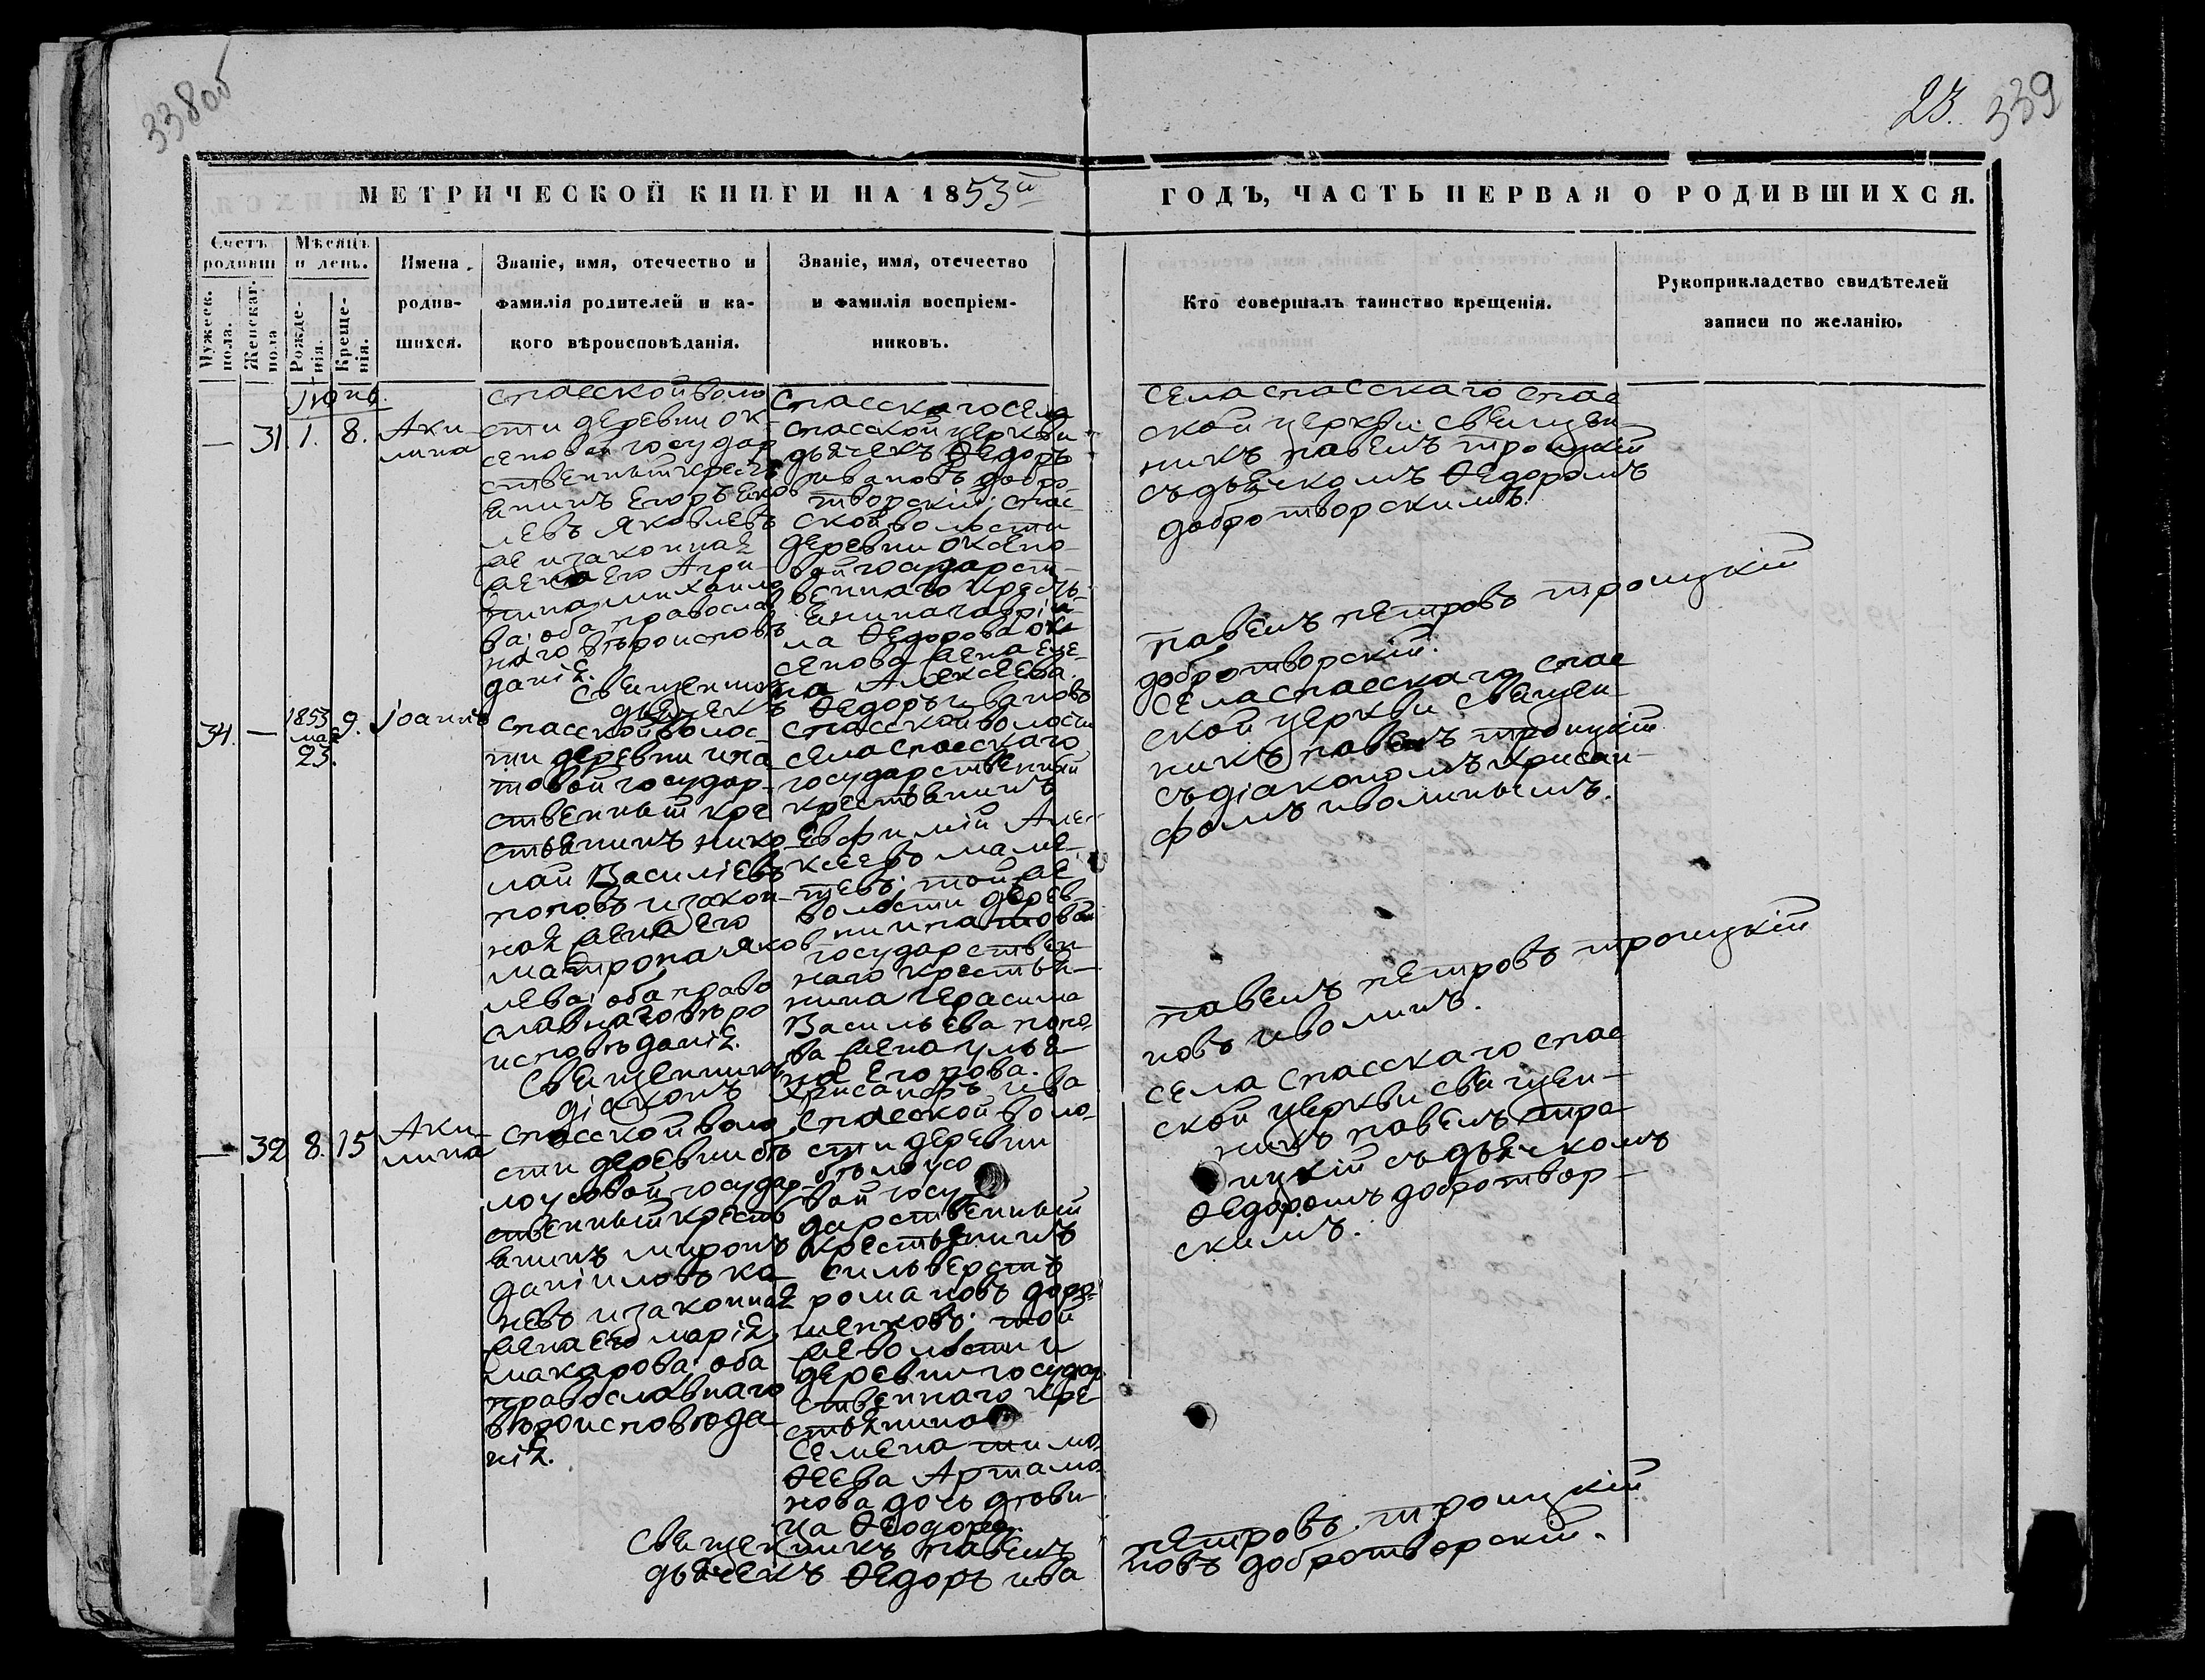 338об
23. 339
МЕТРИЧЕСКОЙ КНИГИ НА 1853й ГОДЪ, ЧАСТЬ ПЕРВАЯ О РОДИВШИХСЯ.
Счетъ родивш
Мужеск. пола.
Женскаг. пола
Мѣсяцъ и день.
Рожденія.
Крещенія.
Имена
родив-
шихся.
Званіе, имя, отечество и
фамилія родителей и ка-
кого вѣроисповѣданія.
Званіе, имя, отечество
и фамилія воспріем-
никовъ.
Кто совершалъ таинство крещенія.
Рукоприкладство свидѣтелей
записи по желанію.
Іюнь.
— 31. 1. 8.
Аки-
лина
спасской воло
сти деревни Ок-
сеновой государ
ственный кресть
янинъ Егоръ Яков
левъ Яковлевъ
и законная
жена его Агри-
пина михаило
ва; оба православ
наго вѣроисповѣ
данія.
Спасскаго села
спасской церкви
дьячекъ Ѳедоръ
ивановъ добро-
творскій; спас-
ской волости
деревни Оксено-
вой государст-
веннаго кресть-
янина гаври-
ла Ѳедорова Ок-
сенова жена Еле-
на Алексеева.
села спасскаго спас
ской церкви священ-
никъ павелъ троицкій
съ дьячкомъ Ѳедоромъ
добротворскимъ.
Священникъ павелъ петровъ троицкій
дьячекъ Ѳедоръ ивановъ добротворскій.
34. — 1853 мая 23. 9.
іоаннъ
спасской волос
ти деревни ипа
товой государ-
ственный кре
стьянинъ нико
лай Василіевъ
поповъ и закон-
ная жена его
матрона яков
лева; оба право
славнаго вѣро
исповѣданія.
спасской волости
села спасскаго
государственный
крестьянинъ
Евфимій Але-
ксеевъ маме-
тевъ; той же
волости дерев
ни ипатовой
государствен
наго крестья-
нина герасима
Васильева попо
ва жена улья-
на Егорова.
села спасскаго спас
ской церкви священ-
никъ павелъ троицкій
съ діакономъ хрисан-
фомъ иволинымъ.
Священникъ павелъ петровъ троицкій
діаконъ хрисанфъ ива новъ иволинъ.
— 32 8. 15
Аки-
лина
спасской воло
сти деревни бѣ
лоусовой государ-
ственный кресть
янинъ миронъ
даніиловъ ка-
невъ и законная
жена его марія
макарова; оба
православнаго
вѣроисповѣда-
нія.
спасской воло-
сти деревни
бѣлоусо
вой госу
дарственный
крестьянинъ
сильверстъ
романовъ доро-
шенковъ; той
же волости и
деревни государ
ственнаго кре-
стьянина
семена тимо
Ѳеева Артамо
нова дочь дѣви-
ца Ѳеодора.
села спасскаго спас
ской церкви священ-
никъ павелъ тро-
ицкій съ дьячкомъ
Ѳедоромъ добротвор-
скимъ.
Священникъ павелъ петровъ троицкій
дьячекъ Ѳедоръ ива новъ добротворскій.